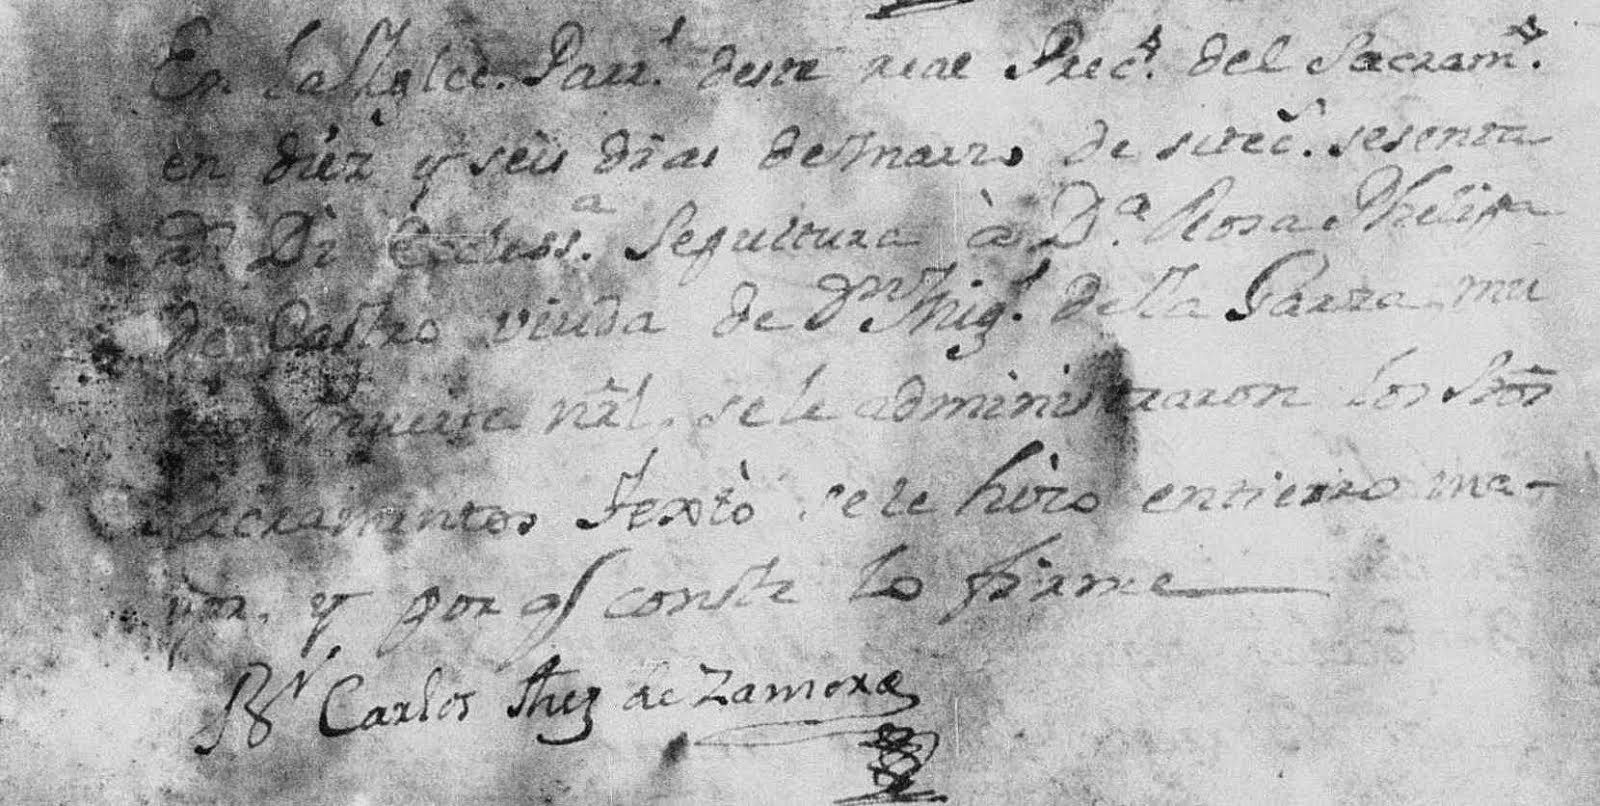 En la Yglec. Parr.l deste real Prec.o del Sacram.to
en diez y seis dias de marzo de setec.s sesenta
Di Eccless.a Sepultura à D.a Rosa Phelipa
de Castro viuda de D.n Mig.l de la Garza mu
muerte nãl. se le administraron los Stõs
Sacramentos textò se le hizo entierro ma-
yor. y por q conste lo firme
B.r Carlos Shez de Zamora